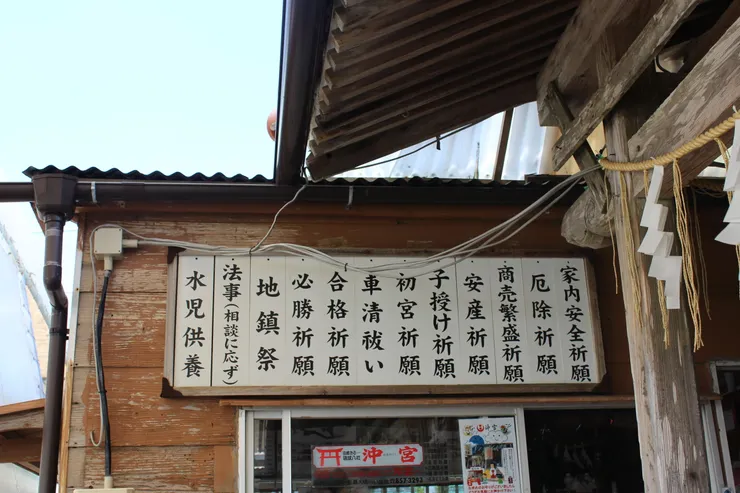 家内安全祈願
厄除祈願
商売繁盛祈願
安産祈願
子授け祈願
初宮祈願
車清祓い
合格祈願
必勝祈願
地鎮祭
法事(相談に応ず)
水児供養
沖宮
857-3293
沖宮